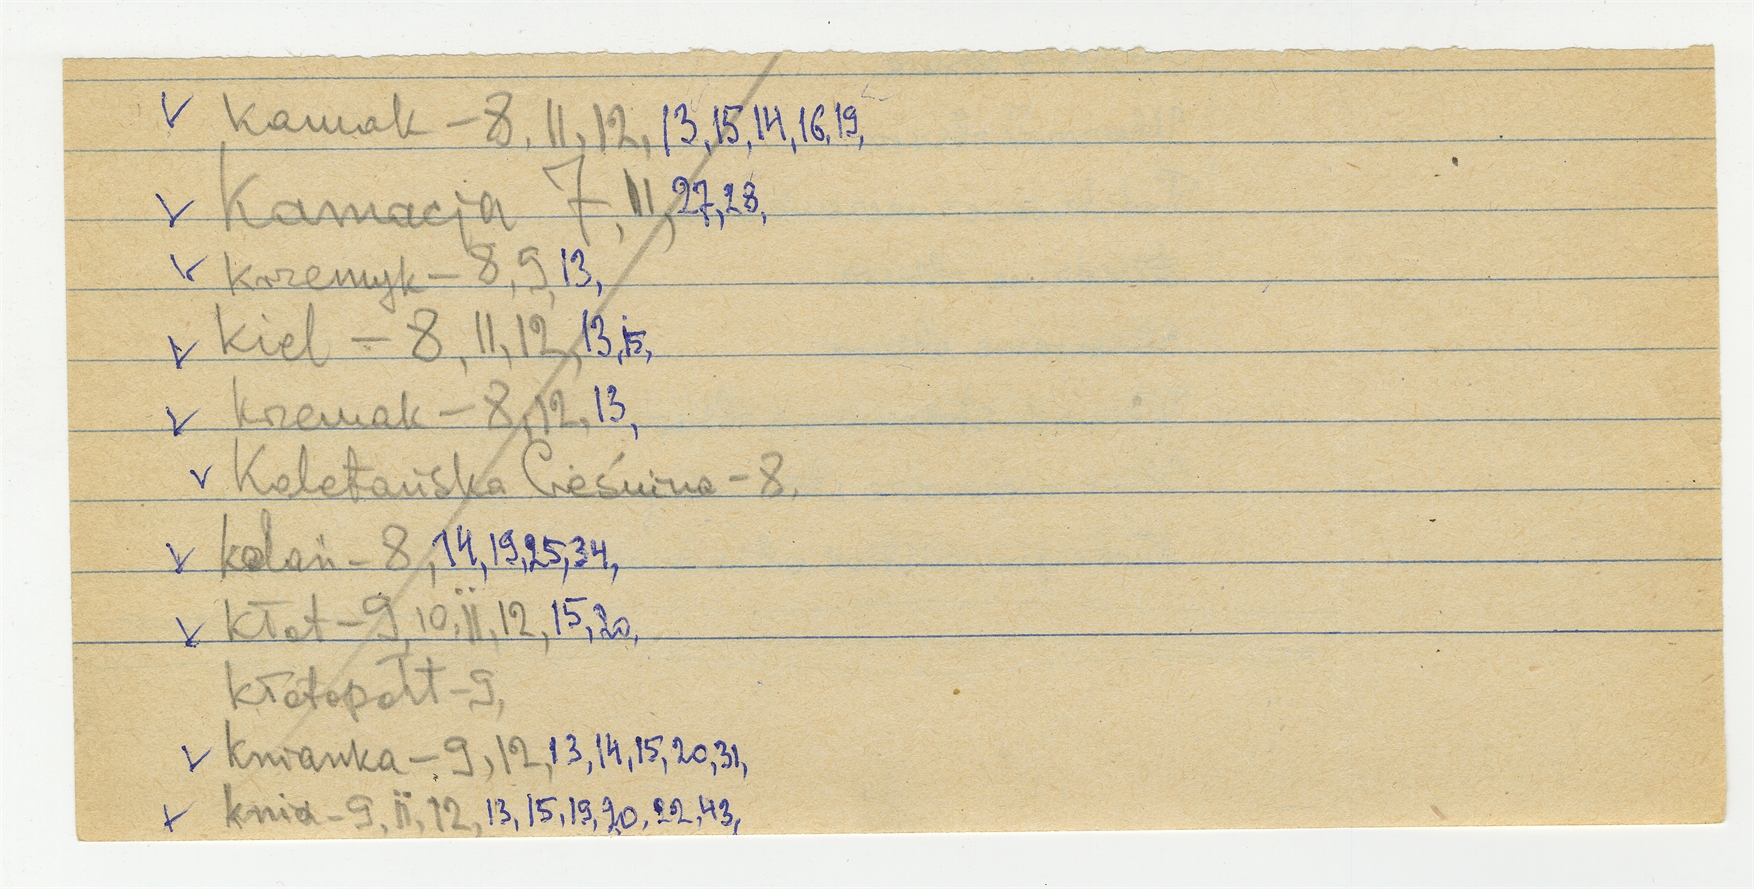 ✓ kamak - 8, 11, 12, 13, 15, 14, 16, 19,
✓ Kamacja 7, 11, 27, 28,
✓ krzemyk - 8, 9, 13,
✓ kiel - 8, 11, 12, 13, 15,
✓ krzemak - 8, 12, 13,
✓ Kaletańska Cieśnina - 8,
✓ kolań - 8, 14, 19, 25, 34,
✓ kłot - 9, 10, 11, 12, 15, 20,
kłotopołt - 9,
✓ knianka - 9, 12, 13, 14, 15, 20, 31,
✓ knia - 9, 11, 12, 13, 15, 19, 20, 22, 43,